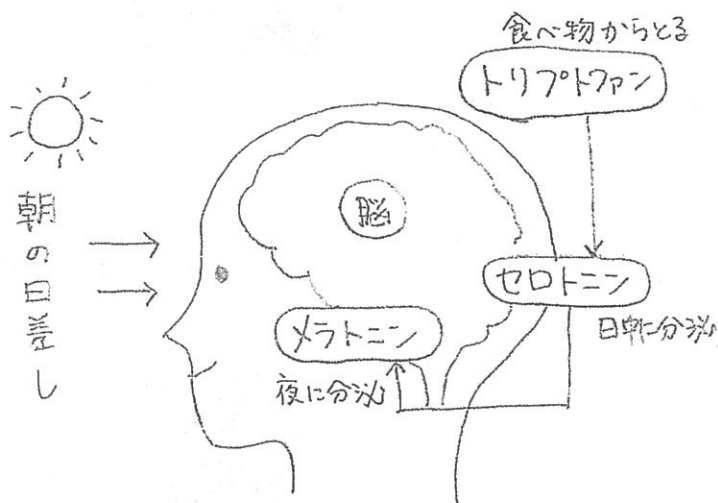 食べ物からとる
トリプトファン
朝の日差し
脳
セロトニン
日中に分泌
メラトニン
夜に分泌